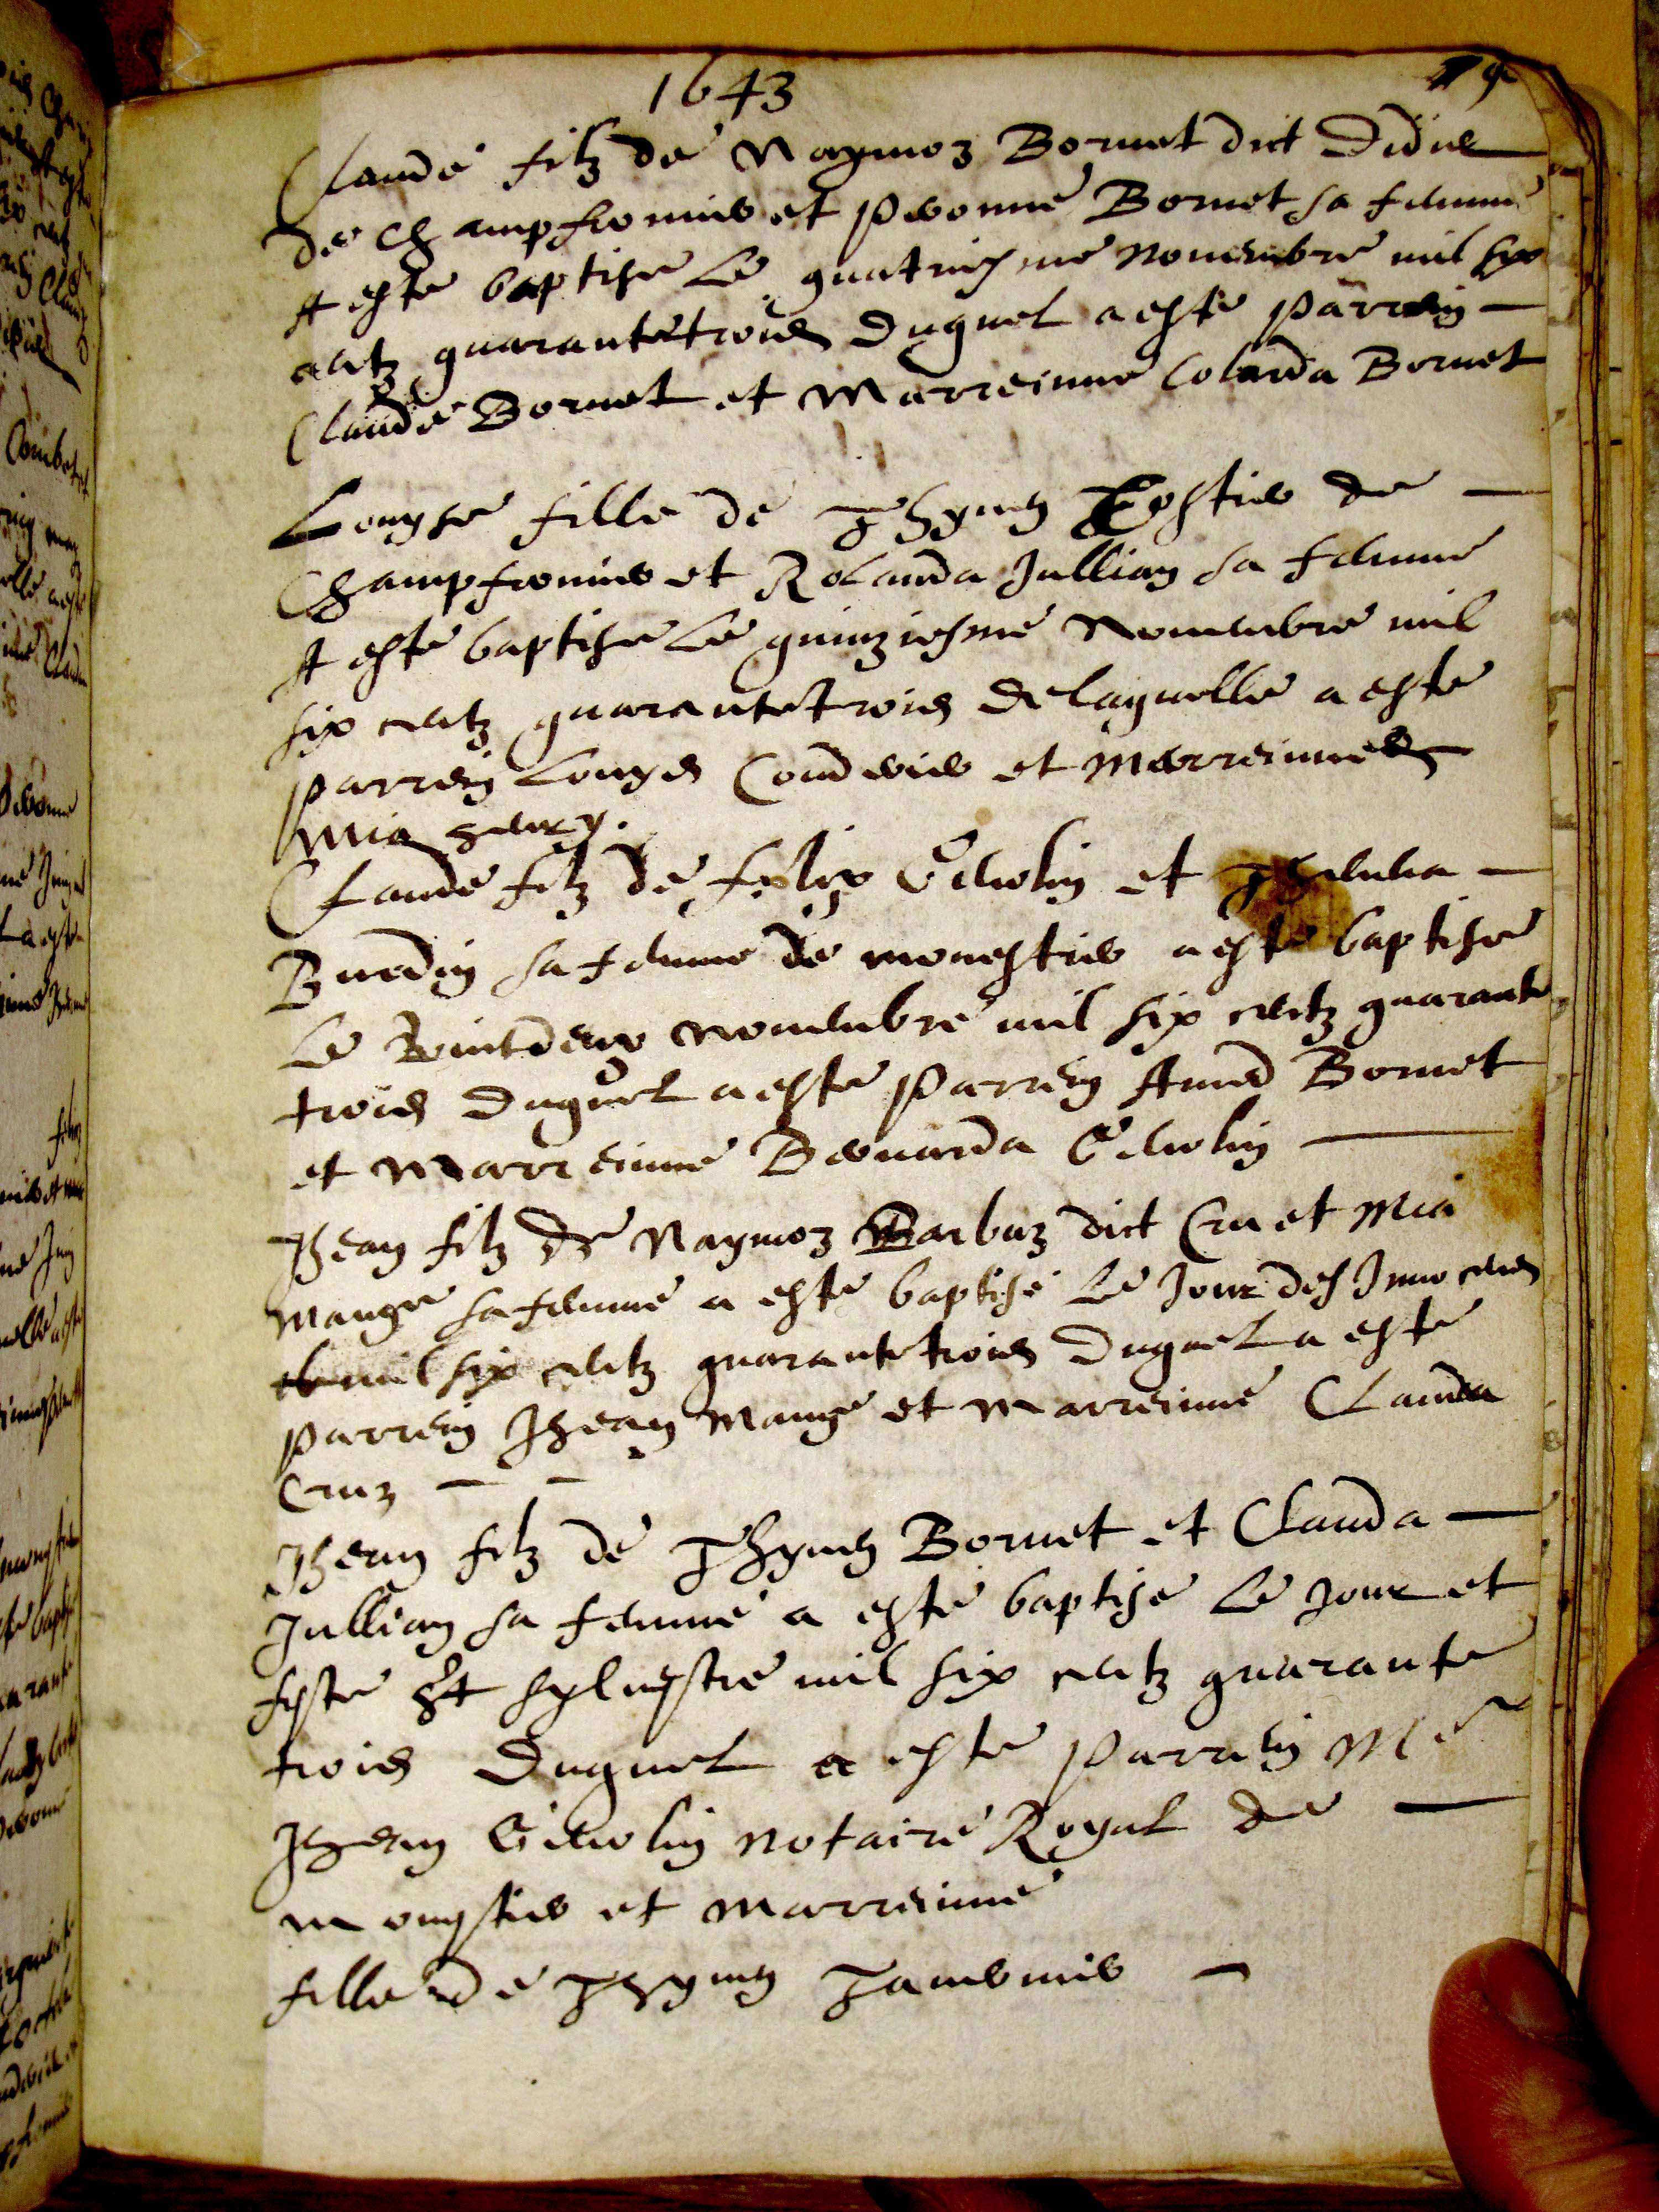 1643
Claude filz de Naymoz Bornet dict Didier
de Champfromier et Pvonne Bornet sa femme
A este baptise le quatriesme Novembre mil six
centz quarantetrois duquel a este Parrein
Claude Bornet et Marreinne Colarda Bornet
Louyse fille de Thyven Tostier de
Champfromier et Rolanda Jullian sa femme
A este baptise le quinziesme Novembre mil
six centz quarantetrois de laquelle a este
Parrein Louys Coudrier et Marreinne
Mia
Claude filz de Felix Genolin et
Burdin sa femme de monestier a este baptise
Le vintdeux novembre mil six centz quarante
trois duquel a este Parrein Amed Bornet
et Marreinne Bernarda Genolin
Jhean filz de Naymoz Barbaz dict Cru et Mia
Mange sa femme a este baptisé Le Jour des Innocens
mil six centz quarantetrois duquel a este
parrein Jhean Mange et Marreinne Clauda
Cruz
Jhean filz de Thyven Bornet et Clauda
Jullian sa femme a esté baptisé Le Jour et
feste St Sylvestre mil six centz quarante
trois Duquel a este Parrein Me
Jhean Genolin notaire Royal de
monestier et marreinne
fille de Thyven Tavernier